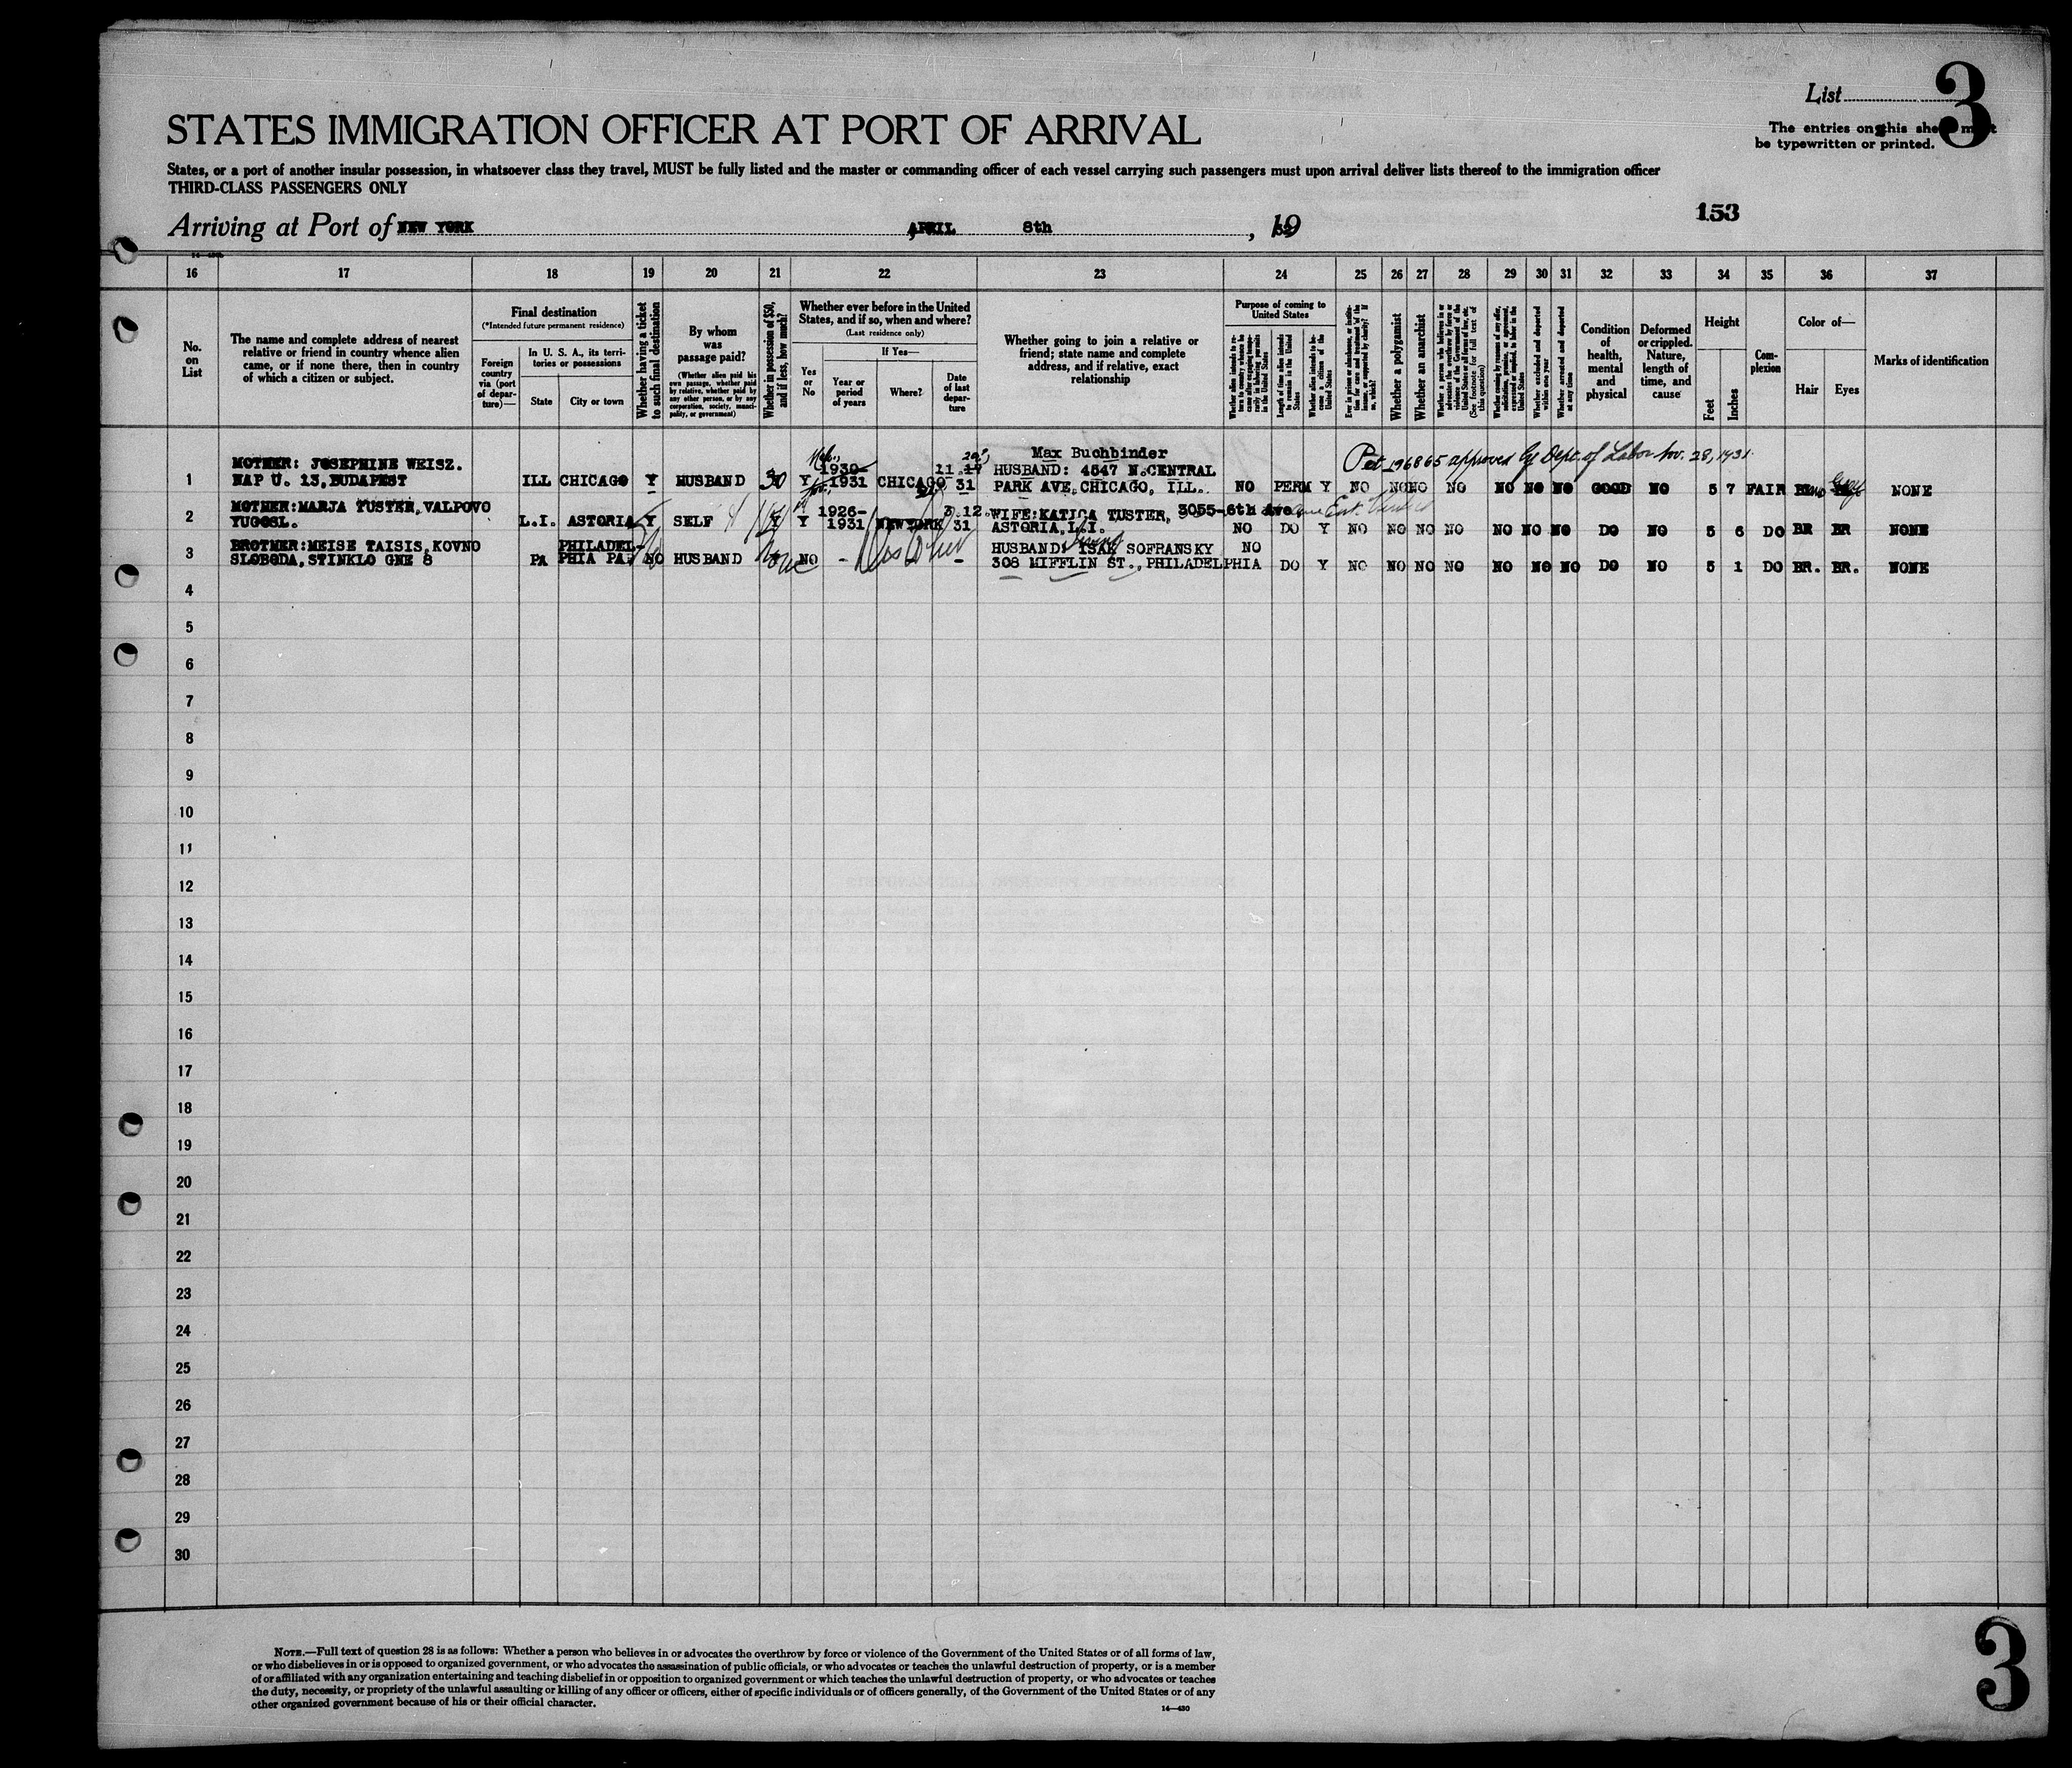 List 3
STATES IMMIGRATION OFFICER AT PORT OF ARRIVAL
The entries on this sheet must
be typewritten or printed.
States, or a port of another insular possession, in whatsoever class they travel, MUST be fully listed and the master or commanding officer of each vessel carrying such passengers must upon arrival deliver lists thereof to the immigration officer
THIRD-CLASS PASSENGERS ONLY
153
Arriving at Port of NEW YORK, APRIL 8th, 19
16 17 18 19 20 21 22 23 24 25 26 27 28 29 30 31 32 33 34 35 36 37
No.
on
List
The name and complete address of nearest
relative or friend in country whence alien
came, or if none there, then in country
of which a citizen or subject.
Final destination
(*Intended future permanent residence)
Foreign
country
via (port
of depar-
ture)—
In U. S. A., its terri-
tories or possessions
State
City or town
Whether having a ticket
to such final destination
By whom
was
passage paid?
(Whether alien paid his
own passage, whether paid
by relative, whether paid by
any other person, or by any
corporation, society, munici-
pality, or government)
Whether in possession of $50,
and if less, how much?
Whether ever before in the United
States, and if so, when and where?
(Last residence only)
Yes
or
No
If Yes—
Year or
period
of years
Where?
Date
of last
depar-
ture
Whether going to join a relative or
friend; state name and complete
address, and if relative, exact
relationship
Purpose of coming to
United States
Whether alien intends to re-
turn to country whence he
came after engaging tempo-
rarily in laboring pursuits
in the United States
Length of time alien intends
to remain in the United
States
Whether alien intends to be-
come a citizen of the
United States
Ever in prison or almshouse, or institu-
tion for care and treatment of the
insane, or supported by charity? If
so, which?
Whether a polygamist
Whether an anarchist
Whether a person who believes in or
advocates the overthrow by force or
violence of the Government of the
United States or all forms of law, etc.
(See footnote for full text of
this question)
Whether coming by reason of any offer,
solicitation, promise, or agreement,
expressed or implied, to labor in the
United States
Whether excluded and deported
within one year
Whether arrested and deported
at any time
Condition
of
health,
mental
and
physical
Deformed
or crippled.
Nature,
length of
time, and
cause
Height
Feet
Inches
Com-
plexion
Color of—
Hair
Eyes
Marks of identification
Pet 196865 approved by Dept. of Labor Nov. 28, 1931
Max Buchbinder
MOTHER: JOSEPHINE WEISZ. 1930- 11.17 HUSBAND: 4547 N.CENTRAL
1 NAP U. 13, BUDAPEST ILL CHICAGO Y HUSBAND 30 Y 1931 CHICAGO 31 PARK AVE, CHICAGO, ILL. NO PERM Y NO NO NO NO NO NO NO GOOD NO 5 7 FAIR NONE
MOTHER: MARJA TUSTER, VALPOVO 1926- 3.12. WIFE: KATICA TUSTER, 3055-6th Ave
2 YUGOSL. L.I. ASTORIA Y SELF Y Y 1931 NEWYORK 31 ASTORIA, L.I. NO DO Y NO NO NO NO NO NO NO DO NO 5 6 DO BR BR NONE
BROTHER: MEISE TAISIS, KOVNO PHILADEL- HUSBAND: ISAK SOFRANSKY NO
3 SLOBODA, STINKLO GNE 8 PA PHIA PA. NO HUSBAND None NO - - 308 MIFFLIN ST., PHILADELPHIA DO Y NO NO NO NO NO NO NO DO NO 5 1 DO BR. BR. NONE
4
5
6
7
8
9
10
11
12
13
14
15
16
17
18
19
20
21
22
23
24
25
26
27
28
29
30
NOTE.—Full text of question 28 is as follows: Whether a person who believes in or advocates the overthrow by force or violence of the Government of the United States or of all forms of law,
or who disbelieves in or is opposed to organized government, or who advocates the assassination of public officials, or who advocates or teaches the unlawful destruction of property, or is a member
of or affiliated with any organization entertaining and teaching disbelief in or opposition to organized government or which teaches the unlawful destruction of property, or who advocates or teaches
the duty, necessity, or propriety of the unlawful assaulting or killing of any officer or officers, either of specific individuals or of officers generally, of the Government of the United States or of any
other organized government because of his or their official character.
14—430
3